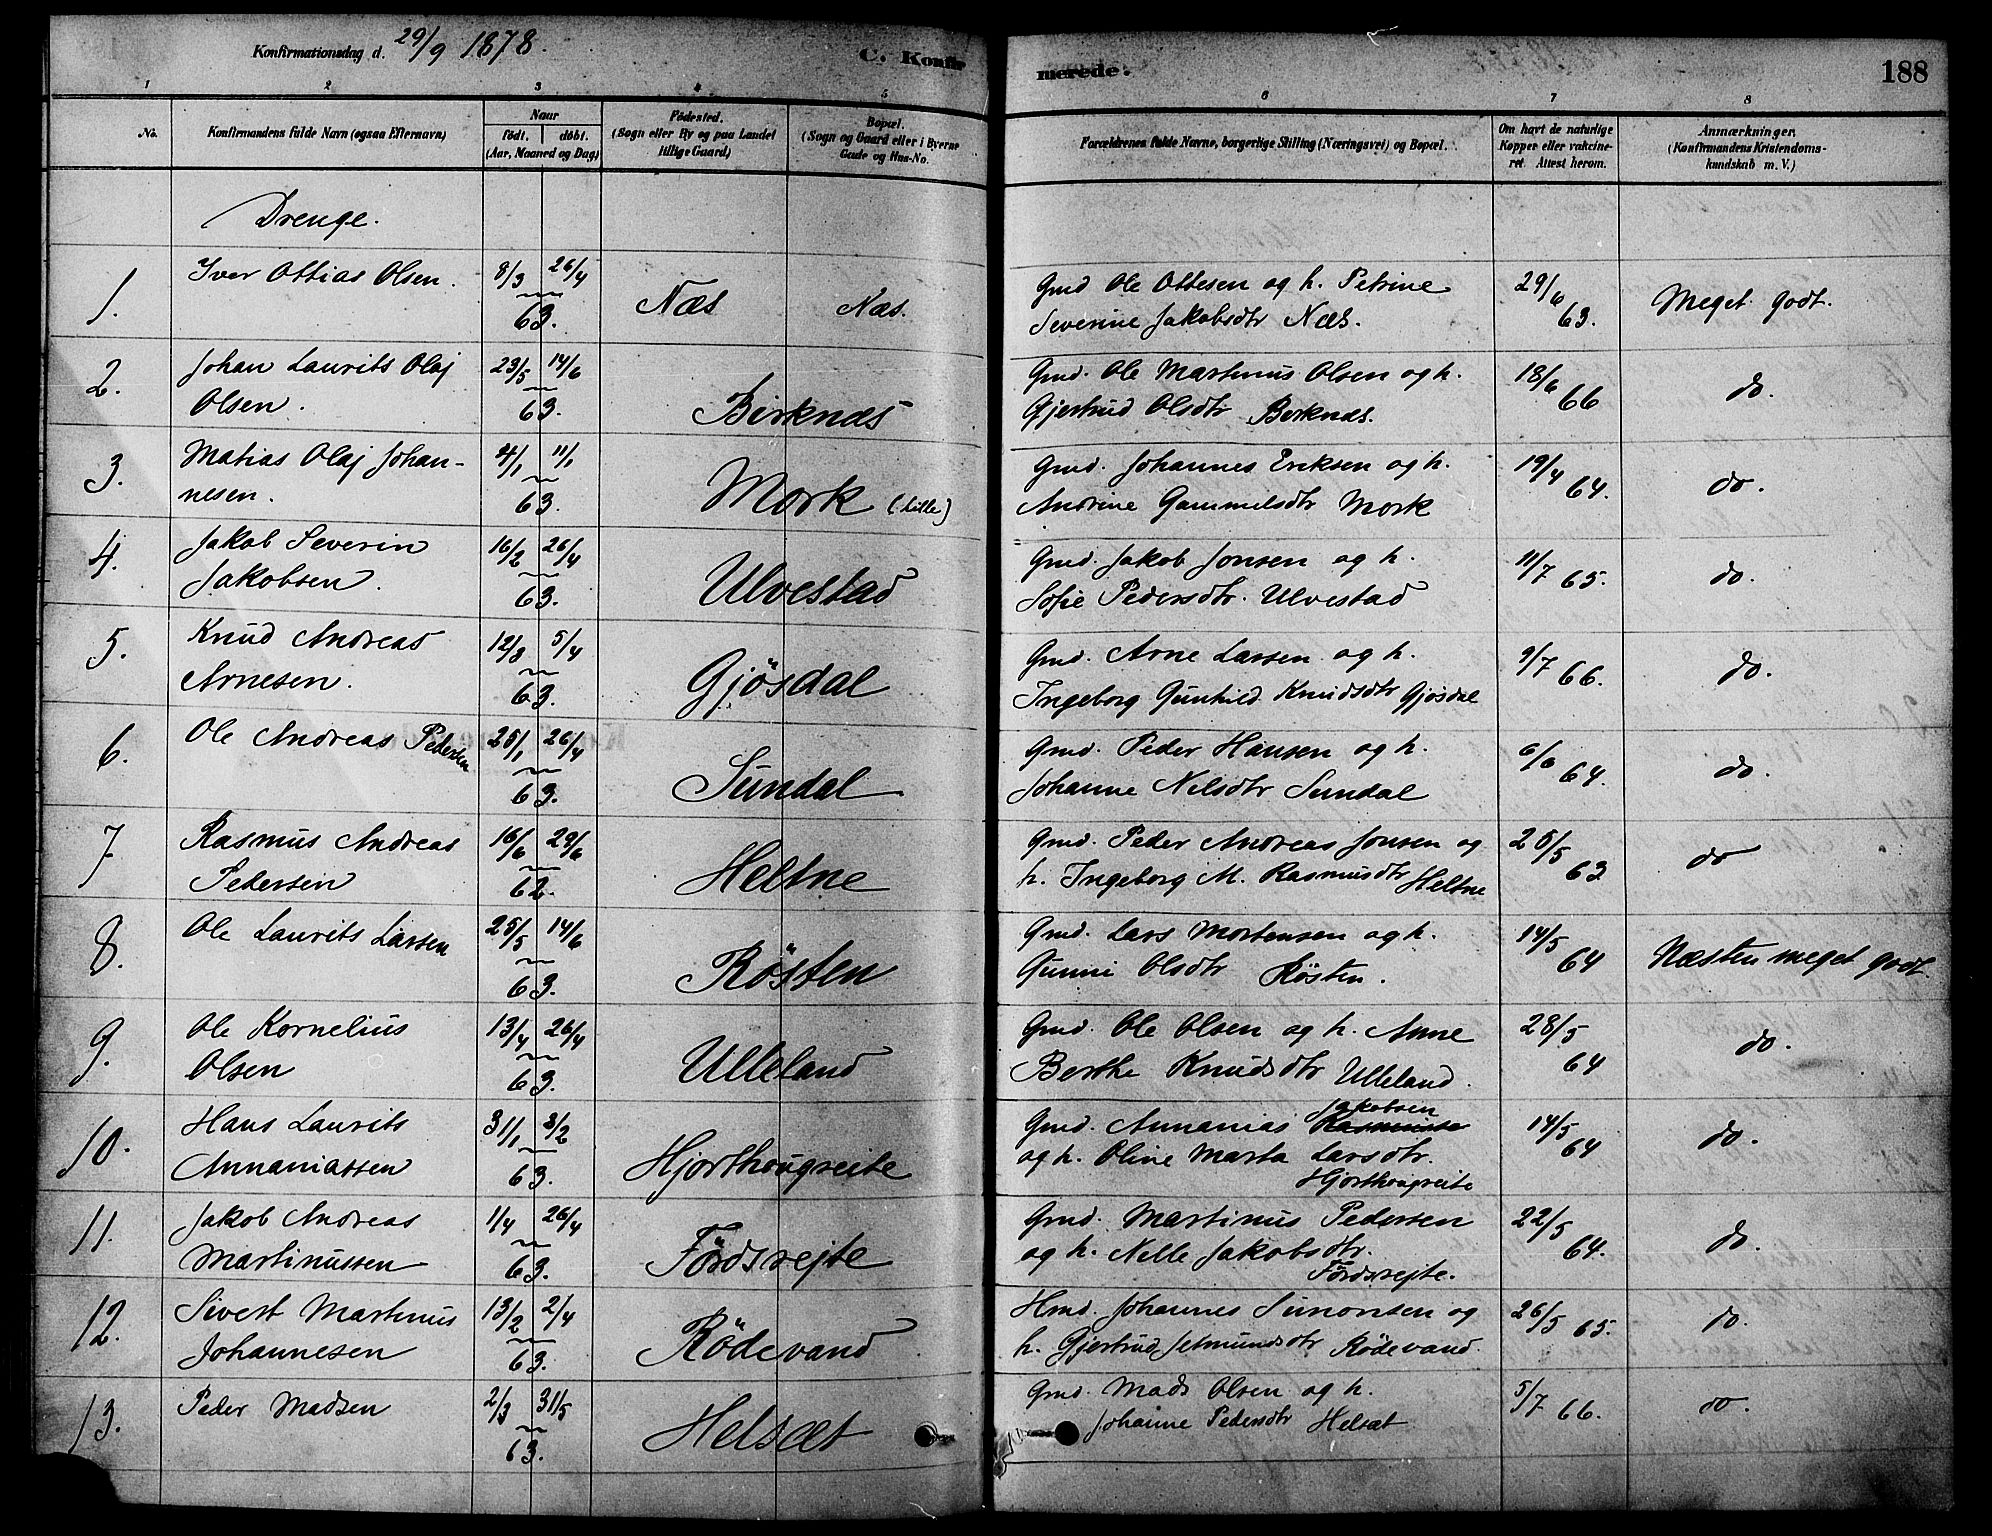 Konfirmationsdag d. 29/9 1878.
C. Konfirmerede.
188
1 2 3 4 5 6 7 8
No.
Konfirmandens fulde Navn (ogsaa Efternavn)
Naar
født. døbt.
(Aar, Maaned og Dag)
Fødested.
(Sogn eller By og paa Landet
tillige Gaard)
Bopæl.
(Sogn og Gaard eller i Byerne
Gade og Hus-No.
Forældrenes fulde Navne, borgerlige Stilling (Næringsvei) og Bopæl.
Om havt de naturlige
Kopper eller vakcine-
ret Attest herom.
Anmærkninger.
(Konfirmandens Kristendoms-
kundskab m. V.)
Drenge.
1. Iver Ottias Olsen. 8/3 26/4 63. Næs Næs. Gmd Ole Ottesen og h. Petrine
Severine Jakobsdtr Næs. 29/6 63. Meget godt.
2. Johan Laurits Olaj
Olsen. 23/5 14/6 63. Birknæs Gmd. Ole Martinus Olsen og h.
Gjertrud Olsdtr Berknæs. 18/6 66 do.
3. Matias Olaj Johan-
nesen. 4/1 11/1 63. Mork (lille) Gmd. Johannes Eriksen og h.
Andrine Gammelsdtr Mork 19/4 64. do.
4. Jakob Severin
Jakobsen. 16/2 26/4 63. Ulvestad Gmd. Jakob Jonsen og h.
Sofie Pedersdtr. Ulvestad 11/7 65. do.
5. Knud Andreas
Arnesen. 12/3 5/4 63. Gjösdal Gmd. Arne Larsen og h.
Ingeborg Gunhild Knudsdtr Gjösdal 9/7 66. do.
6. Ole Andreas Pedersen 25/1 26/4 63. Sundal Gmd. Peder Hansen og h.
Johanne Nilsdtr Sundal 6/6 64. do.
7 Rasmus Andreas
Pedersen 16/6 29/6 62. Heltne Gmd. Peder Andreas Jonsen og
h. Ingeborg M. Rasmusdtr Heltne 25/5 63 do
8. Ole Laurits Larsen 25/5 14/6 63. Rösten Gmd. Lars Mortensen og h.
Gunni Olsdtr Rösten. 14/5 64 Næsten meget godt
9. Ole Kornelius
Olsen 13/4 26/4 63. Ulleland Gmd. Ole Olsen og h. Anne
Berthe Knudsdtr Ulleland. 28/5 64 do.
10. Hans Laurits
Annaniassen 31/1 3/2 63. Hjorthougreite Gmd. Annanias Rasmussen Jakobsen
og h. Oline Marta Larsdtr.
Hjorthougreite 14/5 64 do.
11. Jakob Andreas
Martinussen 1/4 26/4 63. Fördsrejte Gmd. Martinus Pedersen
og h. Nelle Jakobsdtr.
Fördsrejte. 22/5 64. do.
12. Sivert Martinus
Johannesen 13/2 2/4 63. Rödevand Hmd. Johannes Simonsen og
h. Gjertrud Jetmundsdtr Rödevand. 26/5 65. do.
13. Peder Madsen 2/3 31/5 63. Helsæt Gmd. Mads Olsen og h.
Johanne Pedersdtr Helsæt 5/7 66. do.